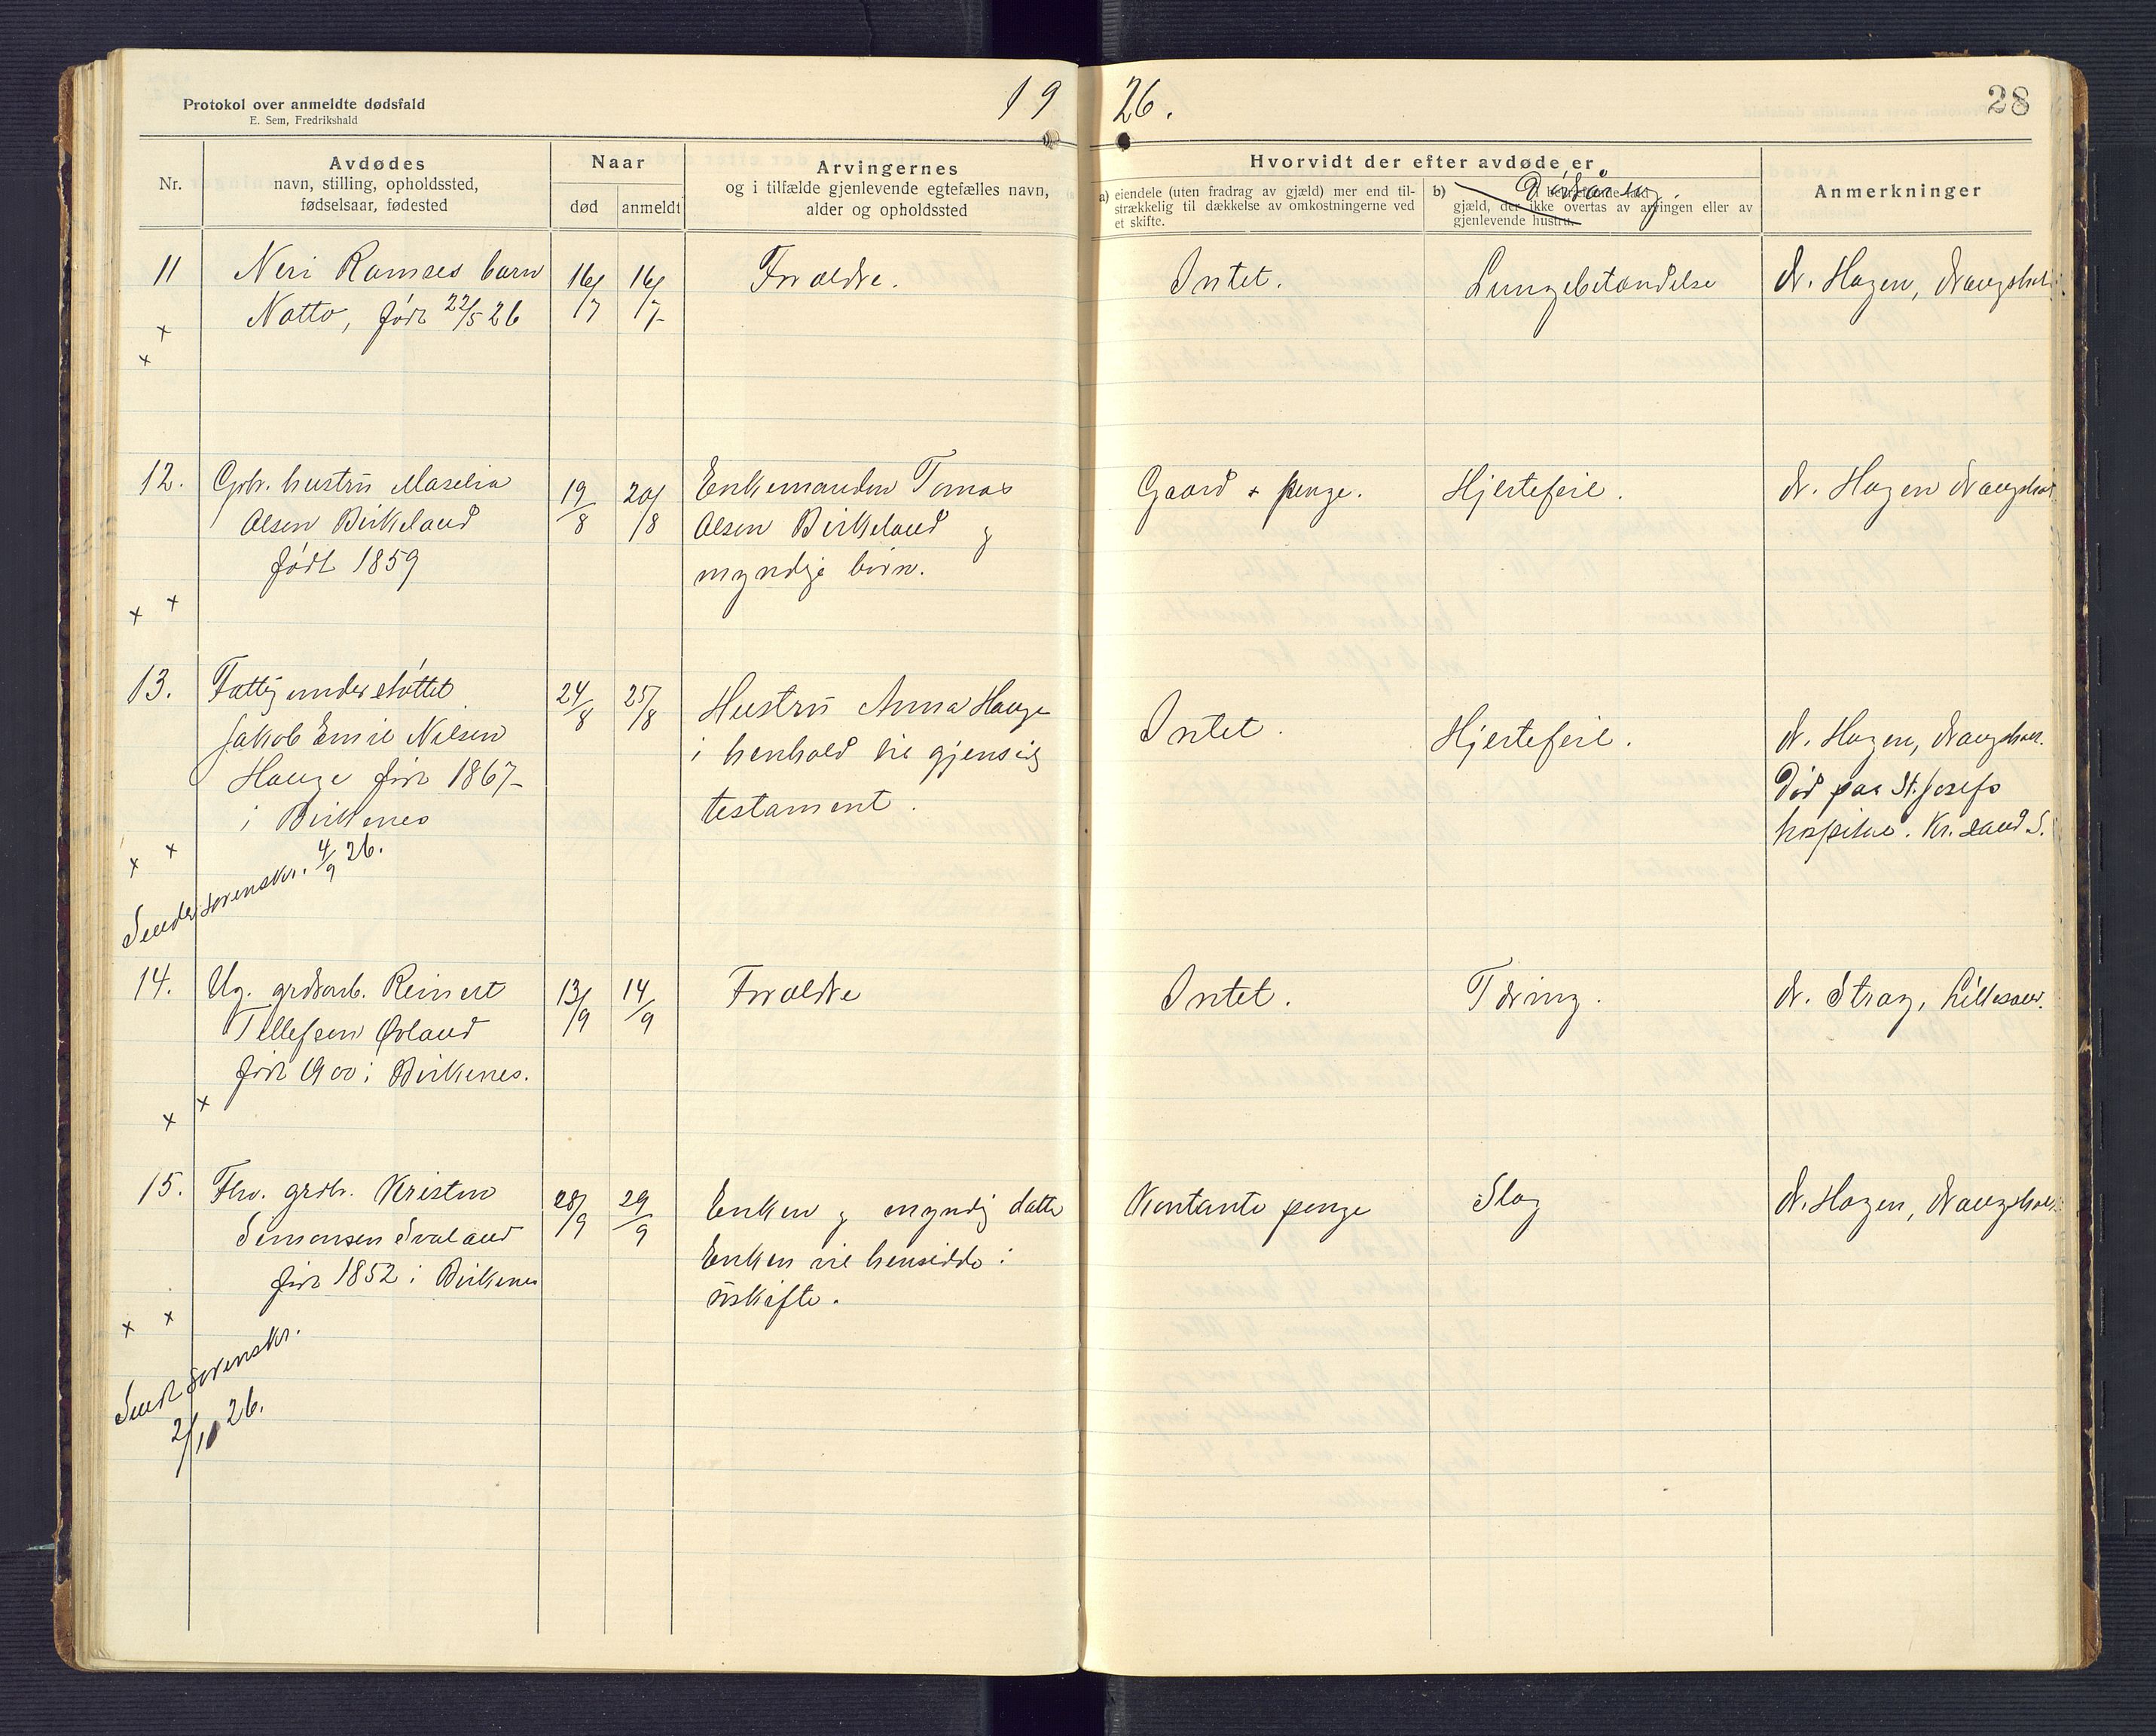 Protokol over anmeldte dødsfald
E. Sem, Fredrikshald
1926.
28
Nr.
Avdødes
navn, stilling, opholdssted,
fødselsaar, fødested
Naar
død
anmeldt
Arvingernes
og i tilfælde gjenlevende egtefælles navn,
alder og opholdssted
Hvorvidt der efter avdøde er
a) eiendele (uten fradrag av gjæld) mer end til-
strækkelig til dækkelse av omkostningerne ved
et skifte.
b)
Dødsårsag.
gjæld, der ikke overtas av arvingen eller av
gjenlevende hustru.
Anmerkninger
11
Neri Ramses barn
Natto, født 22/5 26
16/7
16/7
Forældre.
Intet.
Lungebetændelse
dr. Hagen,
12.
Grbr. hustru Maselia
Olsen Birkeland
født 1859
19/8
20/8
Enkemanden Tomas
Olsen Birkeland og
myndige børn.
Gaard + penge.
Hjertefeil.
dr. Hagen
13.
Fattigunderstøttet
Jakob Emil Nilsen
Hauge født 1867
i Birkenes
24/8
25/8
Hustru Anna Hauge
i henhold til gjensidig
testament.
Intet.
Hjertefeil.
dr. Hagen,
Død paa St. Josefs
hospital. Kr.sand S.
Sendt sorenskr. 4/9 26.
14.
Ug. grdsarb. Reinert
Tellefsen Øvland
født 1900 i Birkenes.
13/9
14/9
Forældre
Intet.
Tæring.
dr. Stray, Lillesand.
15.
Fhv. grdbr. Kristen
Simonsen Svaland
født 1852 i Birkenes
28/9
29/9
Enken og myndig datter
Enken vil hensidde i
uskifte.
Kontante penge
Slag
dr. Hagen,
Sendt sorenskr.
2/10 26.